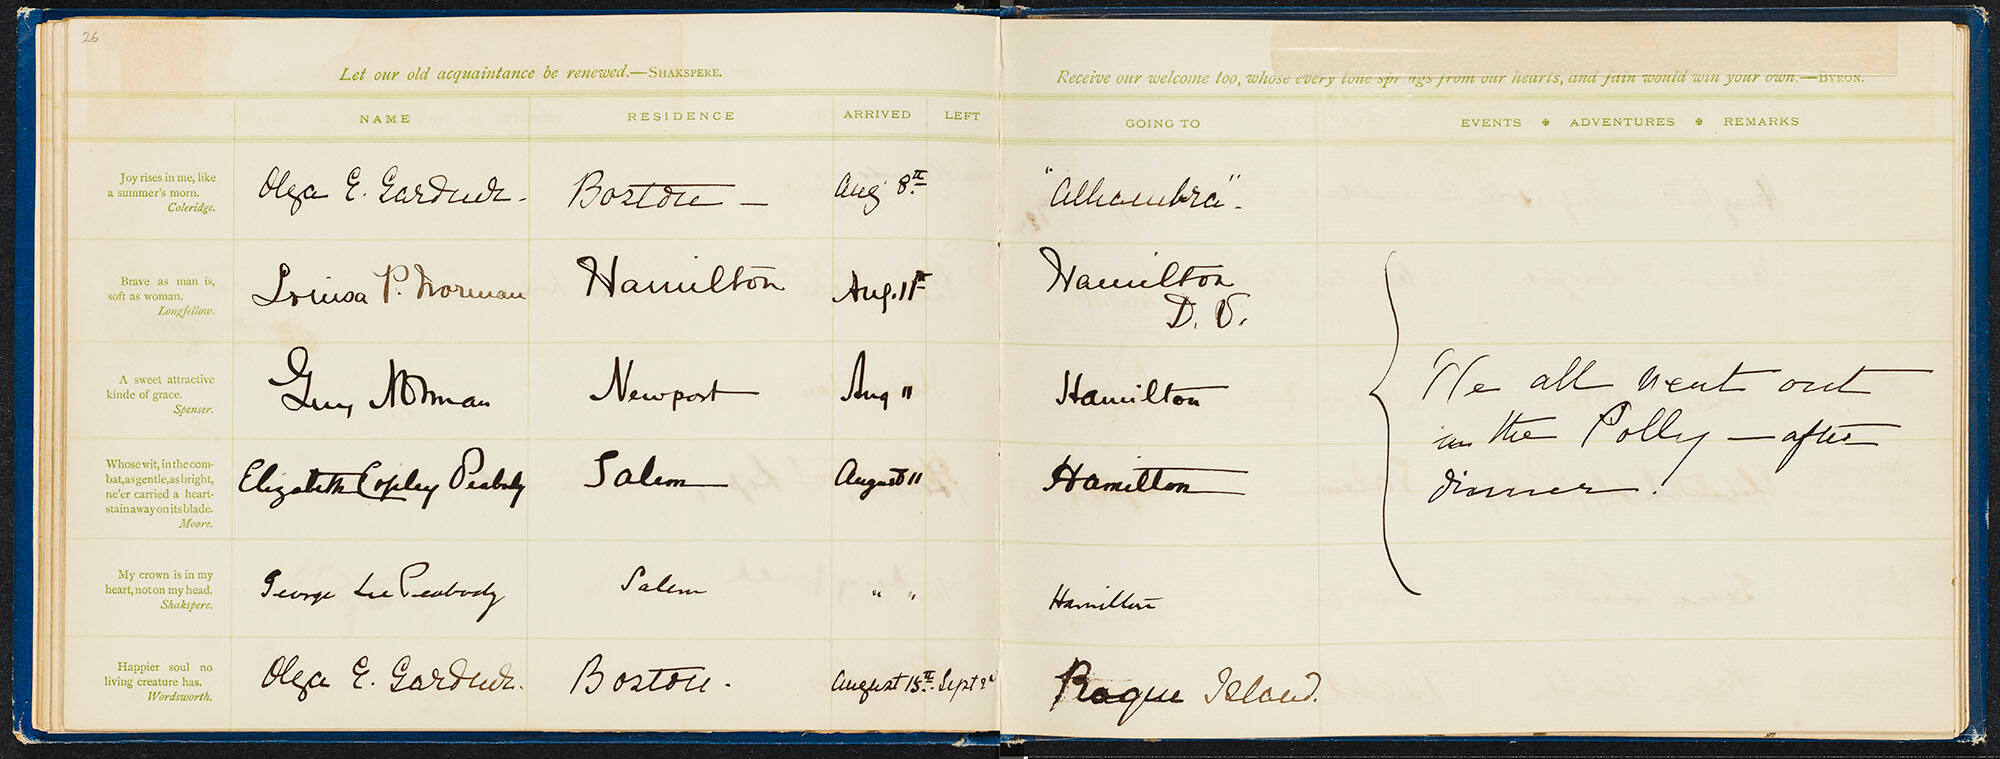 26
Let our old acquaintance be renewed.—SHAKSPERE.
Receive our welcome too, whose every tone springs from our hearts, and fain would win your own.—BYRON.
NAME RESIDENCE ARRIVED LEFT GOING TO EVENTS ✠ ADVENTURES ✠ REMARKS
Joy rises in me, like
a summer's morn.
Coleridge.
Olga E. Gardner. Boston — Aug 8th "Alhambra".
Brave as man is,
soft as woman.
Longfellow.
Louisa P. Norman Hamilton Aug. 11th Hamilton
D. V.
A sweet attractive
kinde of grace.
Spenser.
Guy Norman Newport Aug 11 Hamilton
We all went out
in the Polly — after
dinner!
Whose wit, in the com-
bat, as gentle, as bright,
ne'er carried a heart-
stain away on its blade.
Moore.
Elizabeth Copley Peabody Salem August 11 Hamilton
My crown is in my
heart, not on my head.
Shakspere.
George Lee Peabody Salem " " Hamilton
Happier soul no
living creature has.
Wordsworth.
Olga E. Gardner. Boston. August 15th. Sept 2nd Roque Island.